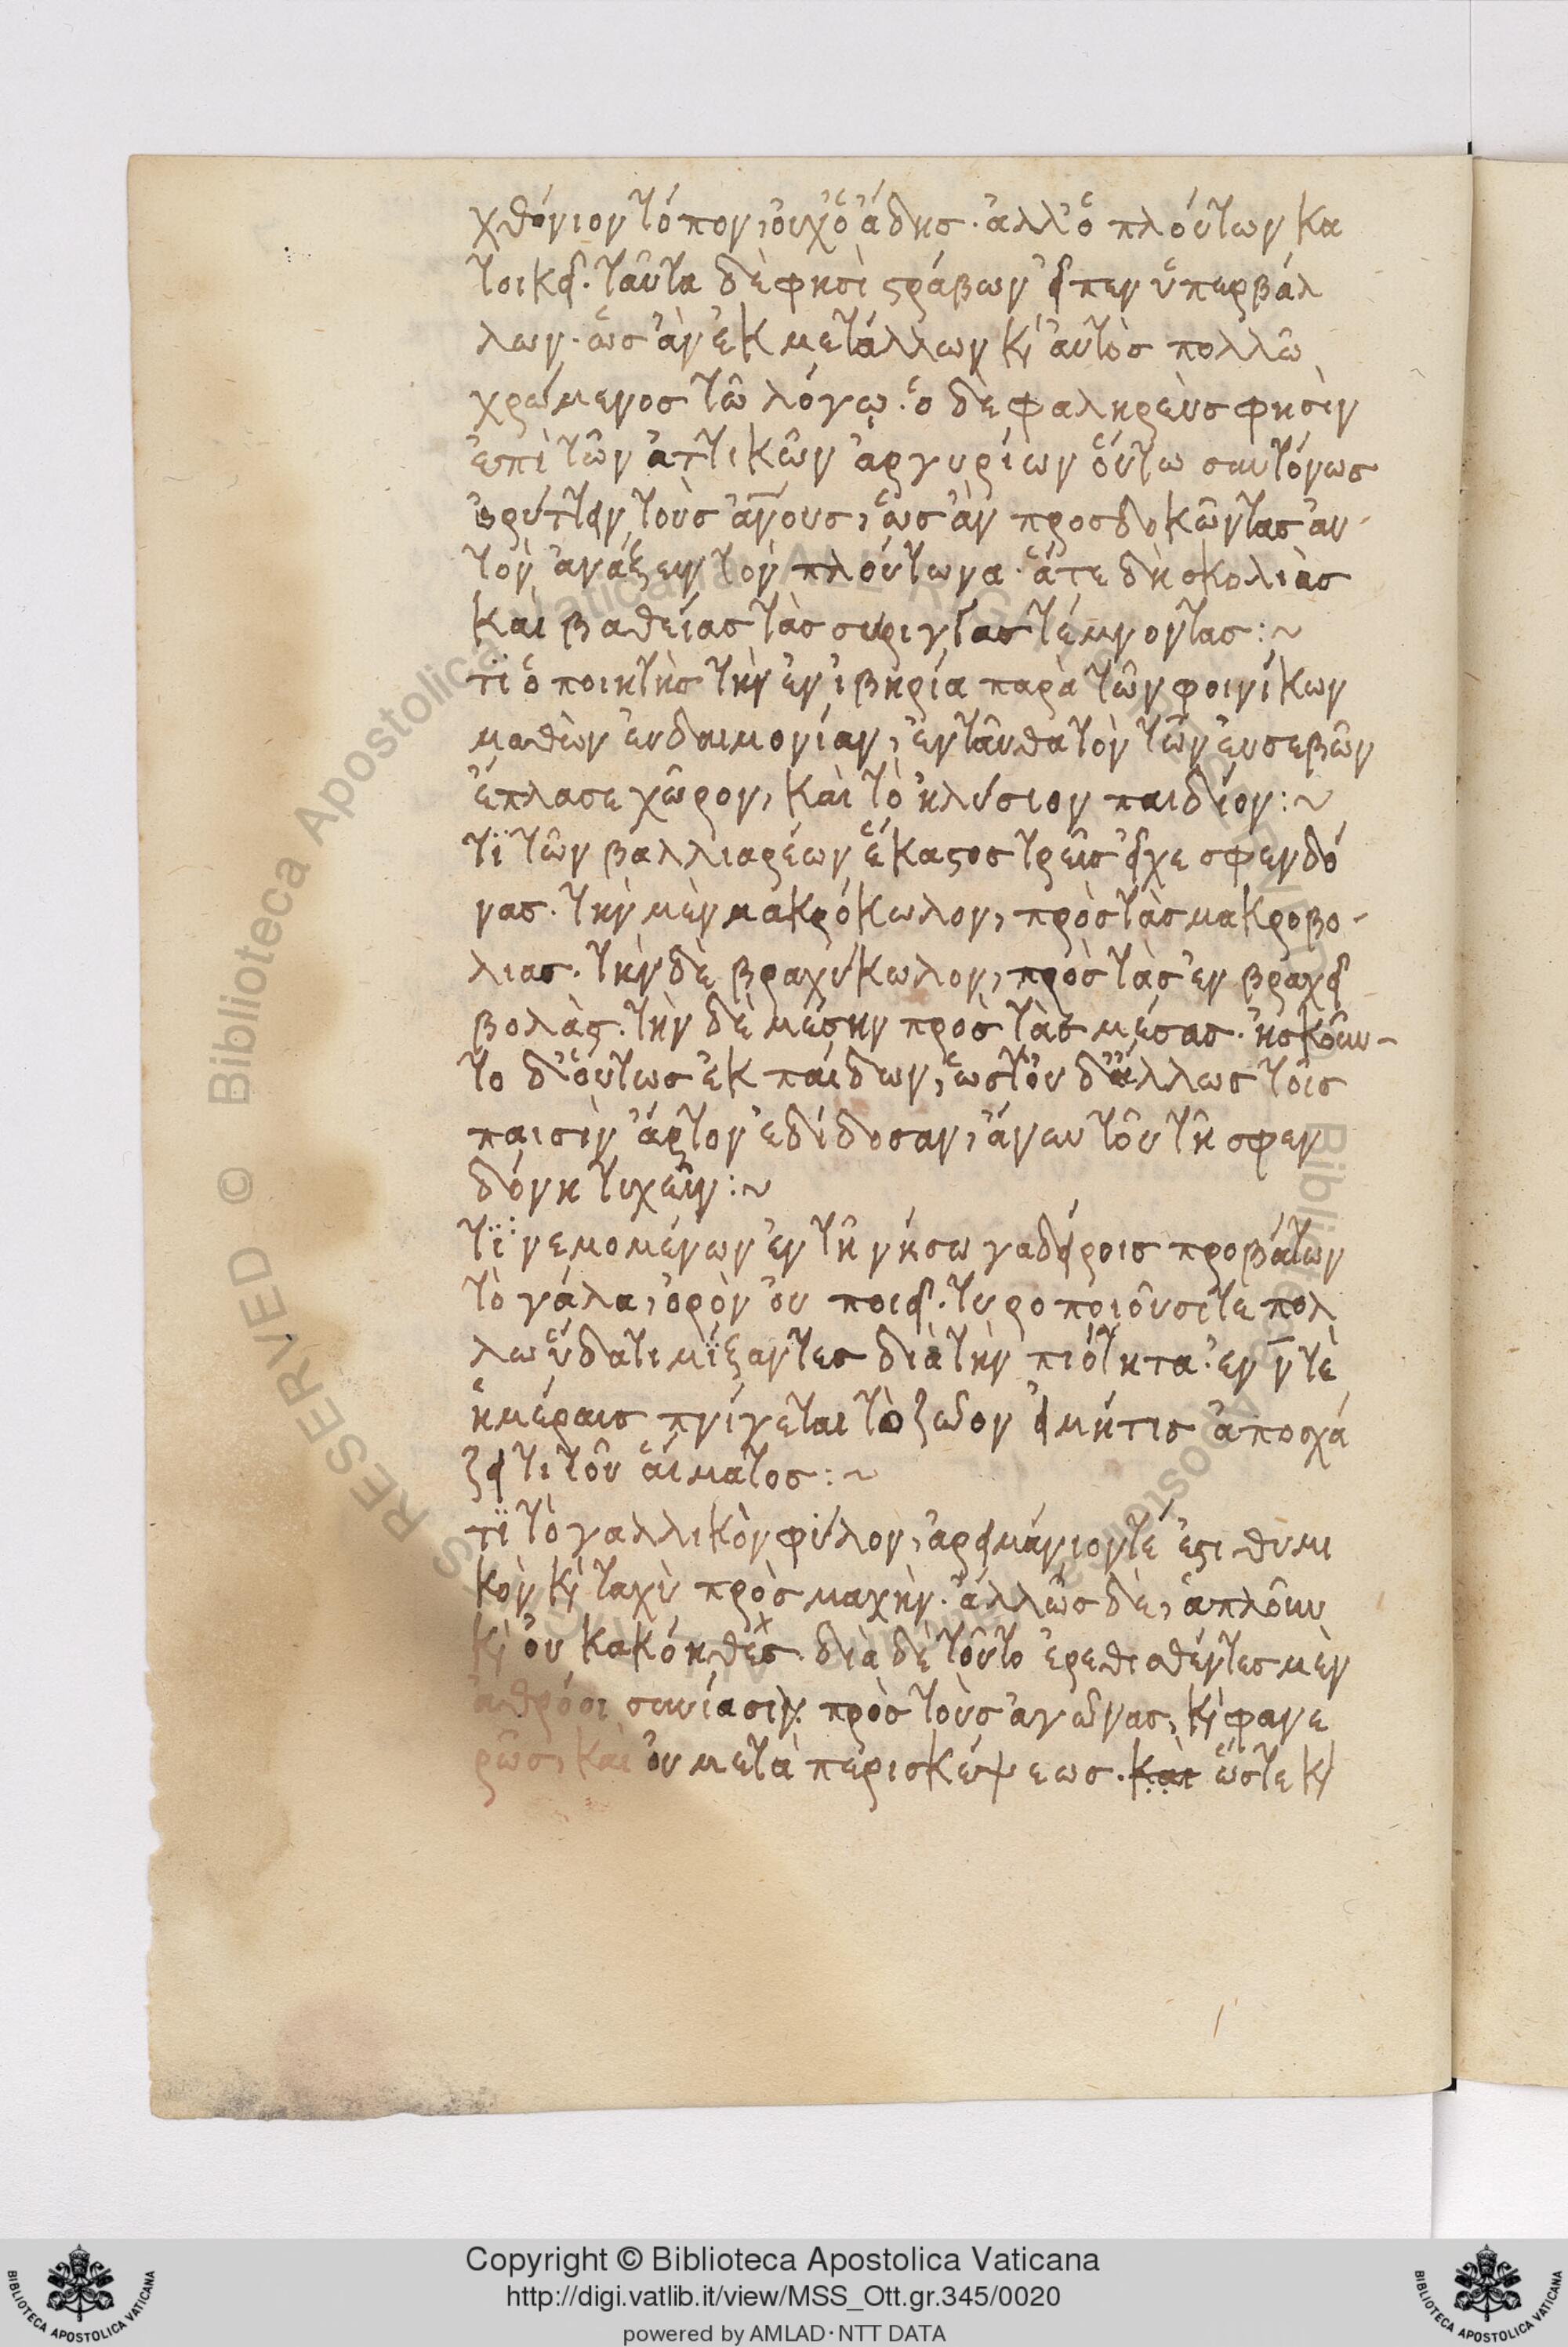 χθόνιον τόπον, οὐχ ὁ ἅδης. ἀλλ' ὁ πλούτων κα
τοικεῖ. ταῦτα δὲ φησὶ στράβων εἶπεν ὑπερβάλ
λων. ὡς ἂν ἐκ μετάλλων καὶ αὐτὸς πολλῶ
χρώμενος τῶ λόγῳ. ὁ δὲ φαληρεὺς φησὶν
ἐπὶ τῶν ἀττικῶν ἀργυρίων οὕτω συντόνως
ὀρύττειν τοὺς ἀνους, ὡς ἂν προσδοκῶντας αυ-
τὸν ἀνάξειν τὸν πλούτωνα. ἅτε δὴ σκολιὰς
καὶ βαθείας τὰς σύριγγας τέμνοντας:~
τϊ ὁ ποιητὴς τὴν ἐν ἰβηρία παρὰ τῶν φοινίκων
μαθὼν ἐυδαιμονίαν, ἐνταῦθα τὸν τῶν ἐυσεβῶν
ἔπλασε χῶρον, καὶ τὸ ἠλύσιον παιδίον:~
τϊ τῶν βαλλιαρέων ἕκαστος τρεῖς εἶχε σφενδό
νας. τὴν μὲν μακρόκωλον, πρὸς τὰς μακροβο-
λιας. τὴν δὲ βραχύκωλον, πρὸς τὰς ἐν βραχεῖ
βολὰς. τὴν δὲ μέσην πρὸς τὰς μέσας. ἠσκοῦν-
το δ' οὕτως ἐκ παίδων, ὥστ' οὐδ' ἄλλως τοῖς
παισὶν ἄρτον ἐδίδοσαν, ἄνευ τοῦ τῆ σφεν
δόνη τυχεῖν:~
τϊ νεμομένων ἐν τῆ νήσω γαδείροις προβάτων
τὸ γάλα, ὀρὸν οὐ ποιεῖ. τυροποιοῦσι τε πολ
λω ὕδατι μίξαντες διὰ τὴν πιότητα. ἐν ν̅ τὲ
ἡμέραις πνίγεται τὸ ζῶον εἰ μήτις ἀποσχά
ζει τι τοῦ αἵματος:~
τϊ τὸ γαλλικὸν φύλον, ἀρειμάνιον τέ ἐστι θυμι
κὸν καὶ ταχὺ πρὸς μαχὴν. ἄλλως δὲ, ἁπλοῦν
καὶ οὐ κακόηθες. διὰ δὲ τοῦτο ἐρεθισθέντες μὲν
ἀθρόοι συνίασιν πρὸς τοὺς ἀγῶνας, καὶ φανε
ρῶς, καὶ οὐ μετὰ περισκέψεως. και ὥστε καὶ
Copyright © Biblioteca Apostolica Vaticana
http://digi.vatlib.it/view/MSS_Ott.gr.345/0020
powered by AMLAD·NTT DATA
BIBLIOTECA APOSTOLICA VATICANA
BIBLIOTECA APOSTOLICA VATICANA